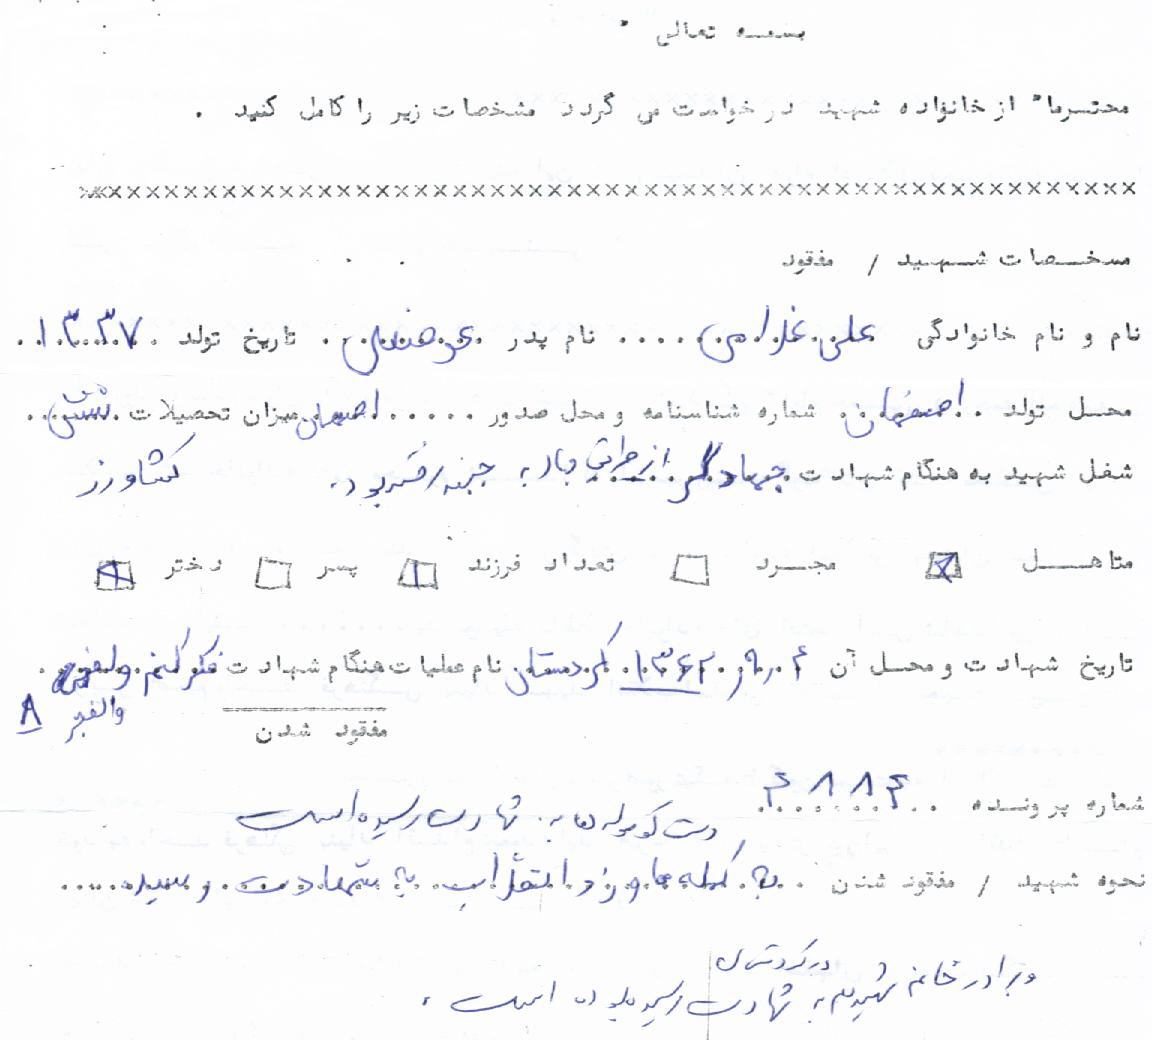 بسمه تعالی
محترما" از خانواده شهید درخواست می گردد مشخصات زیر را کامل کنید .
××××××××××××××××××××××××××××××××××××××××××××××××××××××××
مشخصات شهید / مفقود
نام و نام خانوادگی علی غلامی .... نام پدر ... تاریخ تولد ۱۳۳۷
محل تولد اصفهان شماره شناسنامه و محل صدور ..... اصفهان میزان تحصیلات شش
شغل شهید به هنگام شهادت جهادگر از طرف جهاد به جبهه رفته بود. کشاورز
متاهل مجرد تعداد فرزند ۱ پسر دختر ۱
تاریخ شهادت و محل آن ۱۳۶۲ کردستان نام عملیات هنگام شهادت فکر کنم والفجر
والفجر ۸
مفقود شدن
شماره پرونده ۴۸۸۴
دست کومله ها به شهادت رسیده است
نحوه شهید / مفقود شدن به شهادت رسیده
در کردستان
و برادر خانم شهیدم به شهادت رسیده بوده است .